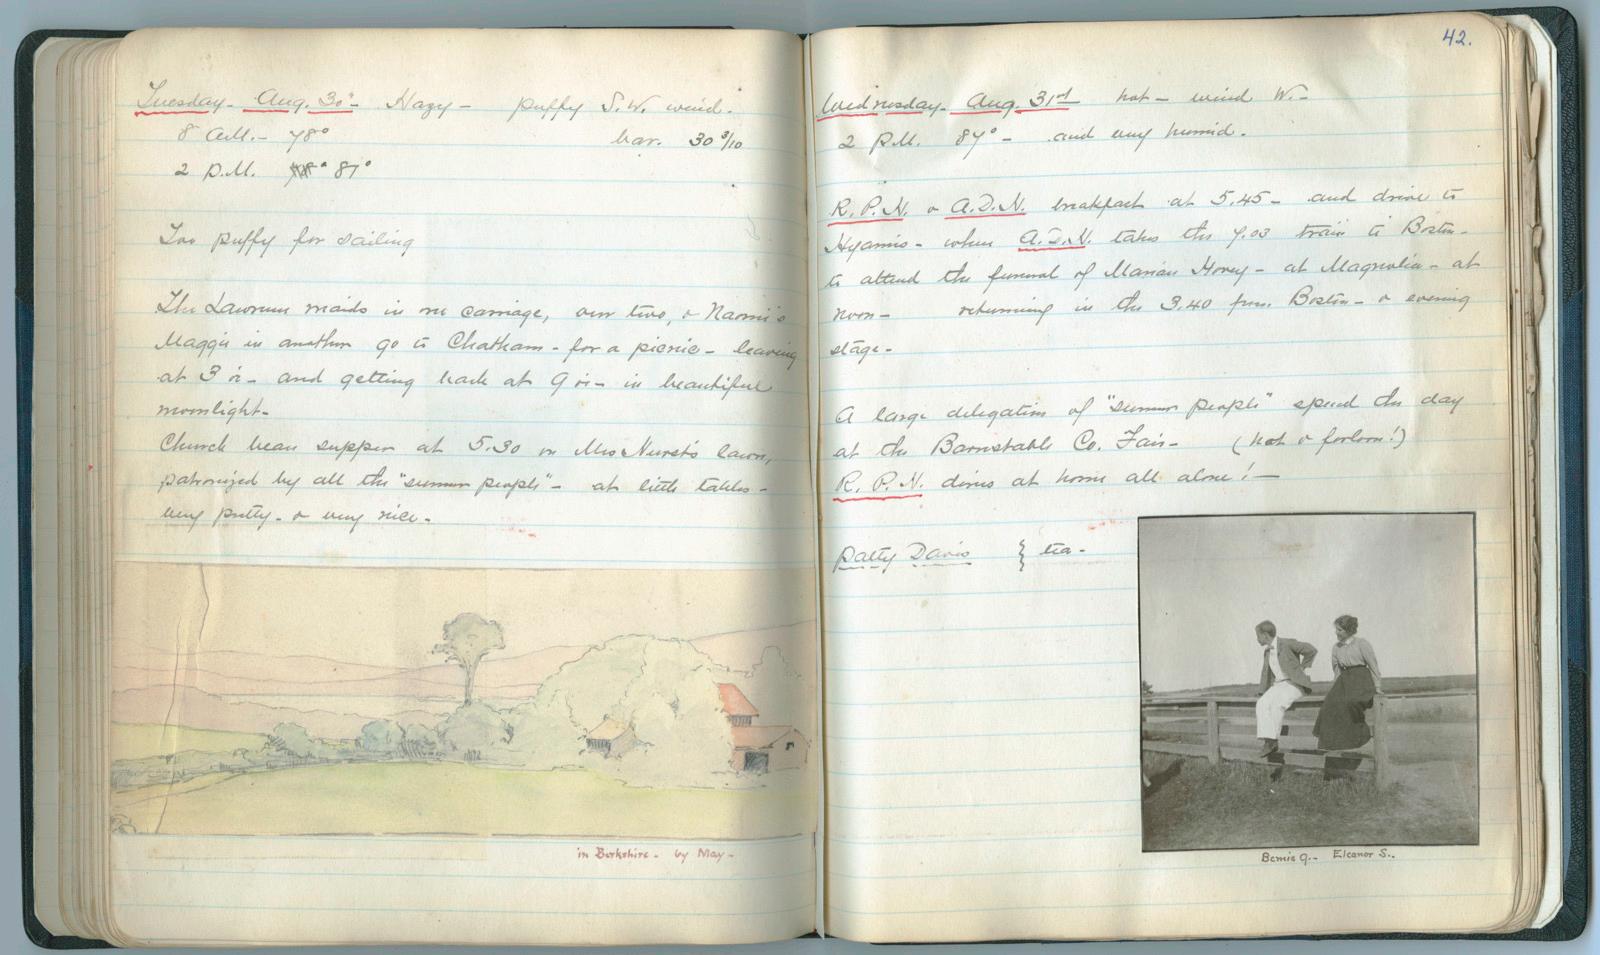 Tuesday - Aug. 30th - Hazy - puffy S.W. wind.
8 A.M. - 78° bar. 30 3/10
2 P.M. 81°
Too puffy for sailing
The Lawrence maids in one carriage, our two, & Naomi's
Maggie in another go to Chatham - for a picnic - leaving
at 3 - and getting back at 9 - in beautiful
moonlight -
Church bean supper at 5.30 on Mrs Nurse's lawn,
patronized by all the "summer people" - at little tables -
very pretty - & very nice -
in Berkshire - by May -
42.
Wednesday - Aug. 31st hot - wind W. -
2 P.M. 87° - and very humid.
R.P.N. & A.D.N. breakfast at 5.45 - and drive to
Hyannis - when A.D.N. takes the 7.03 train to Boston -
to attend the funeral of Marian Hovey - at Magnolia - at
noon - returning in the 3.40 from Boston - & evening
stage -
A large delegation of "summer people" spend the day
at the Barnstable Co. Fair - (hot & forlorn!)
R.P.N. dines at home all alone! -
Patty Davis } tea -
Bernie G. - Eleanor S.